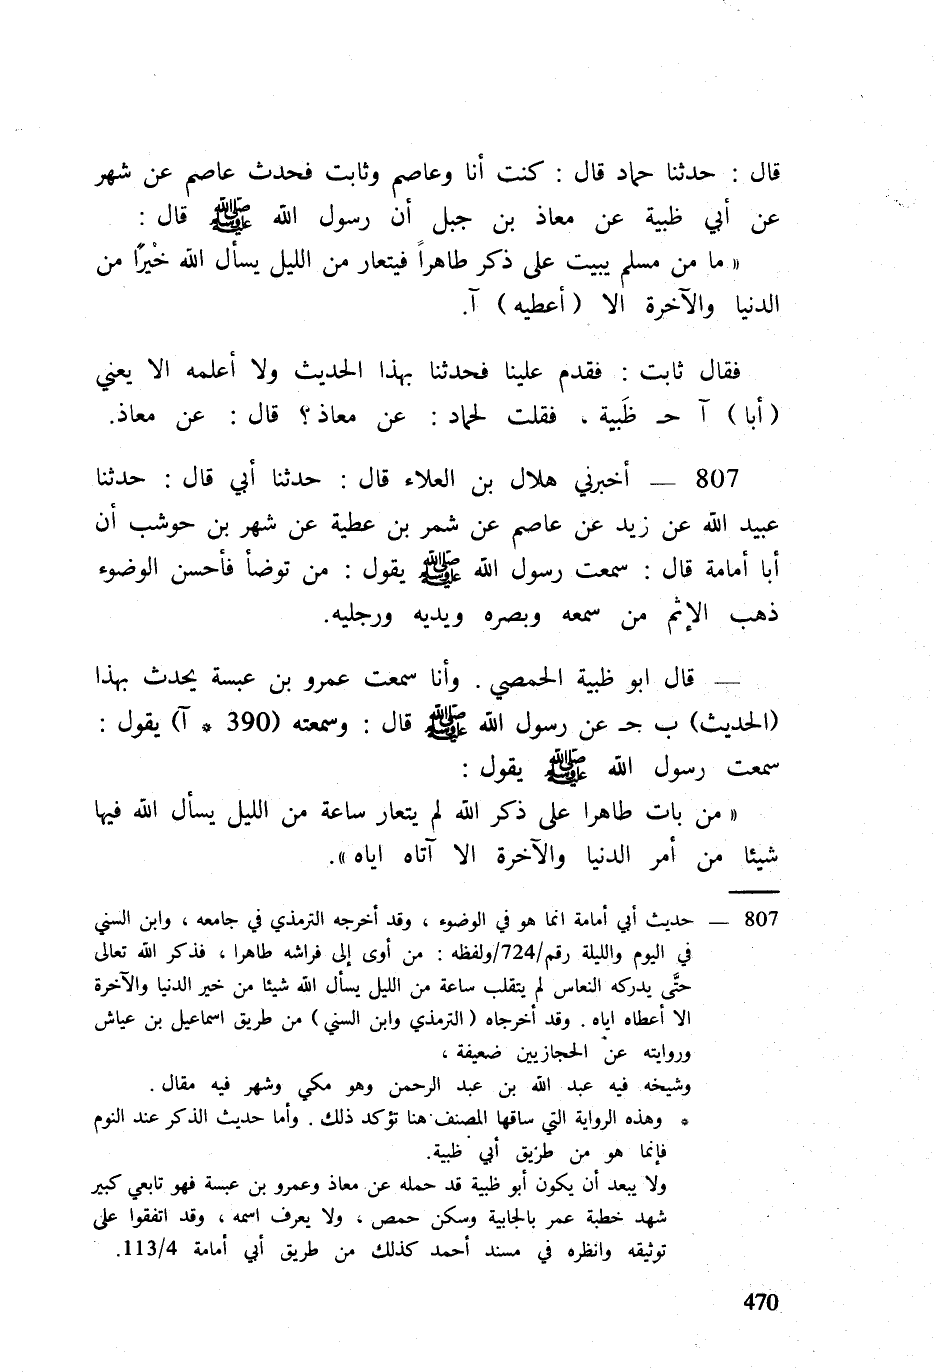 قال : حدثنا حماد قال : كنت أنا وعاصم وثابت فحدث عاصم عن شهر
عن أبي ظبية عن معاذ بن جبل أن رسول الله ﷺ قال :
« ما من مسلم يبيت على ذكر طاهراً فيتعار من الليل يسأل الله خيْراً من
الدنيا والآخرة الا ( أعطيه ) آ.
فقال ثابت : فقدم علينا فحدثنا بهذا الحديث ولا أعلمه الا يعني
( أبا ) آ حـ ظَبية . فقلت لحماد : عن معاذ ؟ قال : عن معاذ.
807 — أخبرني هلال بن العلاء قال : حدثنا أبي قال : حدثنا
عبيد الله عن زيد عن عاصم عن شمر بن عطية عن شهر بن حوشب أن
أبا أمامة قال : سمعت رسول الله ﷺ يقول : من توضأ فأحسن الوضوء
ذهب الإثم من سمعه وبصره ويديه ورجليه.
— قال ابو ظبية الحمصي . وأنا سمعت عمرو بن عبسة يحدث بهذا
(الحديث) ب جـ عن رسول الله ﷺ قال : وسمعته (390 * آ) يقول :
سمعت رسول الله ﷺ يقول :
« من بات طاهرا على ذكر الله لم يتعار ساعة من الليل يسأل الله فيها
شيئا من أمر الدنيا والآخرة الا آتاه اياه ».
807 — حديث أبي أمامة انما هو في الوضوء ، وقد أخرجه الترمذي في جامعه ، وابن السني
في اليوم والليلة رقم/724/ولفظه : من أوى إلى فراشه طاهرا ، فذكر الله تعالى
حتَّى يدركه النعاس لم يتقلب ساعة من الليل يسأل الله شيئا من خير الدنيا والآخرة
الا أعطاه اياه . وقد أخرجاه ( الترمذي وابن السني ) من طريق اسماعيل بن عياش
وروايته عن الحجازيين ضعيفة ،
وشيخه فيه عبد الله بن عبد الرحمن وهو مكي وشهر فيه مقال .
* وهذه الرواية التي ساقها المصنف هنا تؤكد ذلك . وأما حديث الذكر عند النوم
فإنما هو من طريق أبي ظبية.
ولا يبعد أن يكون أبو ظبية قد حمله عن معاذ وعمرو بن عبسة فهو تابعي كبير
شهد خطبة عمر بالجابية وسكن حمص ، ولا يعرف اسمه ، وقد اتفقوا على
توثيقه وانظره في مسند أحمد كذلك من طريق أبي أمامة 113/4.
470